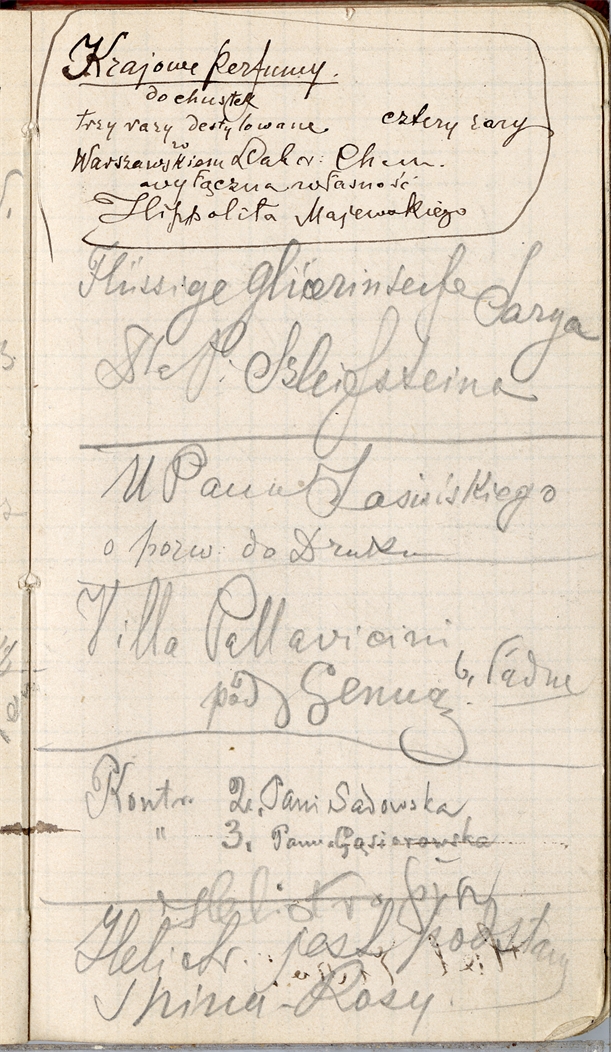 Krajowe perfumy.
do chustek
trzy razy destylowane cztery razy
w
Warszawskiem Labor: Chem.
wyłączna własność
Hippolita Majewskiego
Flüssige Glicerinseife Sarga
Dla P. Szleifszteina
U Pana Jasińskiego
o pozw. do Druku
Villa Pallavicini
pod Genuą b. ładne
Kontr. 2. Pani Sadowska
" 3. Panna Gąsiorowska
Heliotr. post. podstawy
Spina-Rosy